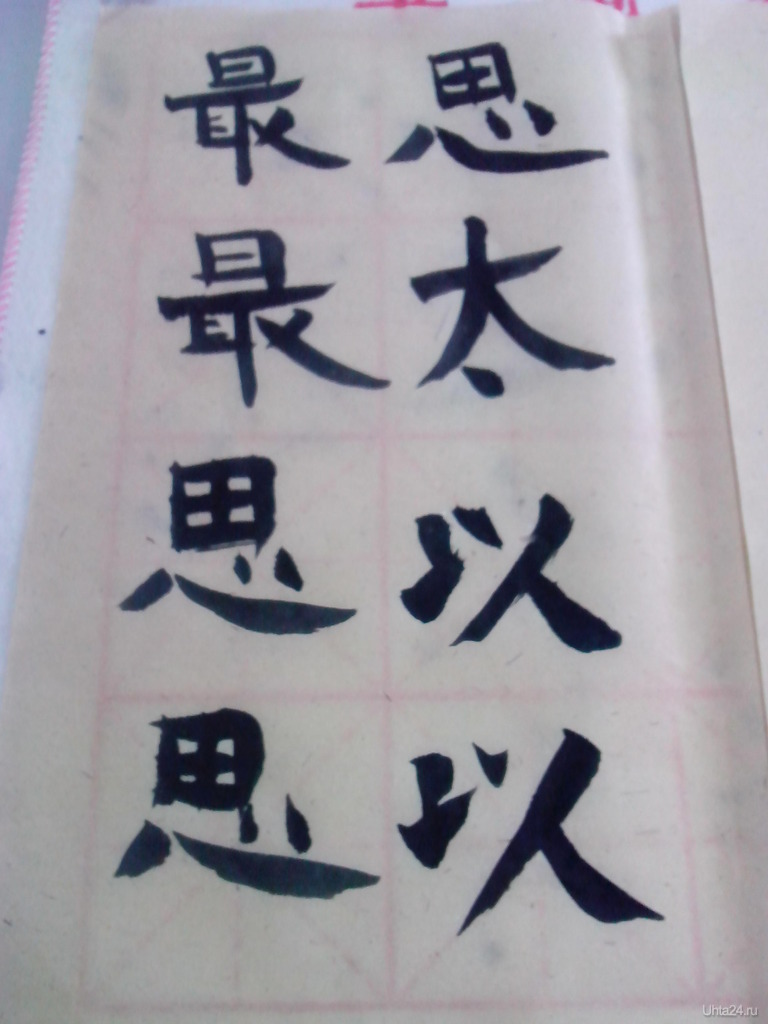 思太以以
最最思思
Uhta24.ru